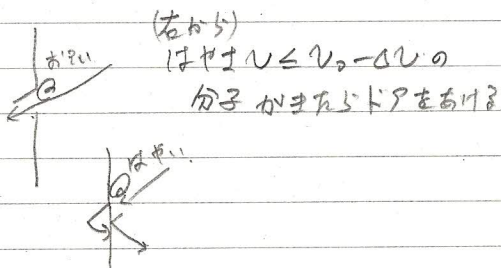 (右から)
はやさ v ≤ v₀-Δv の
分子がきたらドアをあける
おそい
はやい